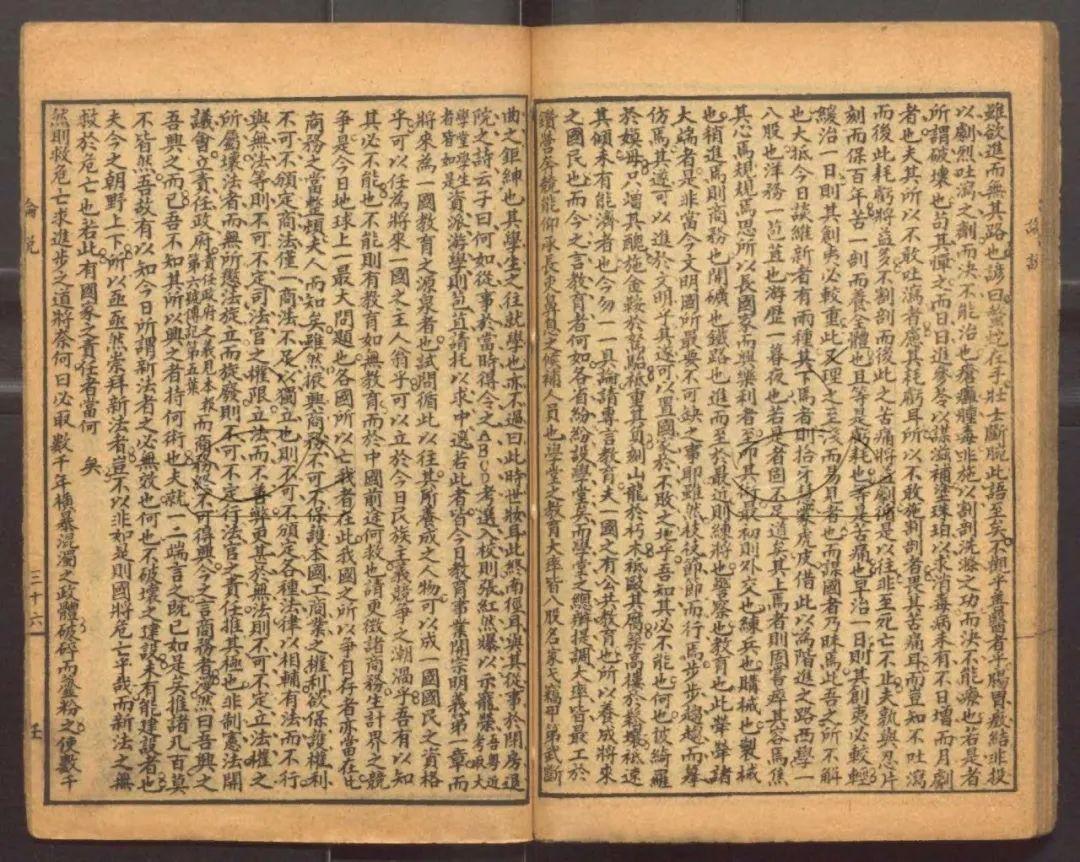 雖欲進而無其路也諺曰螫蛇在手壯士斷腕此語至矣不觀乎善醫者乎腸胃癥結非投
以劇烈吐瀉之劑而決不能治也瘡癰腫毒非施以割剖洗滌之功而決不能療也若是者
所謂破壞也苟其憚之而日日進參苓以謀滋補塗珠珀以求消毒病未有不日增而月劇
者也夫其所以不敢吐瀉者慮其耗虧耳所以不敢施割剖者畏其苦痛耳而豈知不吐瀉
而後此耗虧將益多不割剖而後此之苦痛將益劇循是以往非至死亡不止夫孰與忍片
刻而保百年苦一剖而養全體也且等是虧耗也等是苦痛也早治一日則其創夷必較輕
緩治一日則其創夷必較重此又理之至淺而易見者也而謀國者乃昧焉此吾之所不解
也大抵今日談維新者有兩種其下焉者則拾牙慧蒙虎皮借此以為階進之路西學一
八股也洋務一苞苴也游歷一暮夜也若是者固不足道矣其上焉者則固嘗瘁其容焉焦
其心焉規規焉思所以長國家而興樂利者至叩其術最初則外交也練兵也購械也製械
也稍進焉則商務也開礦也鐵路也進而至於最近則練將也警察也教育也此犖犖諸
大端者是非當今文明國所最要不可缺之事耶雖然枝枝節節而行焉步步趨趨而摹
仿焉其遂可以進於文明乎其遂可以置國家於不敗之地乎吾知其必不能也何也披綺羅
於嫫母只增其醜施金鞍於駑駘祗重其負刻山龍於朽木祗駴其腐築高樓於鬆壤祗速
其傾未有能濟者也今勿一一具論請專言教育夫一國之有公共教育也所以養成將來
之國民也而今之言教育者何如各省紛紛設學堂矣而學堂之總辦提調大率皆最工於
鑽營奔競能仰承長吏鼻息之候補人員也學堂之教育大率皆八股名家弋竊甲第武斷
曲之鉅紳也其學生之往就學也亦不過曰此時世妝耳此終南徑耳與其從事於閉房退
院之詩云子曰何如從事於當時得令之ABCD考選入校則張紅然爆以示寵榮吾粵近考取大
學堂學生者皆如是資派游學則苞苴請托以求中選若此者皆今日教育事業開宗明義第一章而
將來為一國教育之源泉者也試問循此以往其所養成之人物可以成一國國民之資格
乎可以任為將來一國之主人翁乎可以立於今日民族主義競爭之潮渦乎吾有以知
其必不能也不能則有教育如無教育而於中國前途何救也請更徵諸商務生計界之競
爭是今日地球上一最大問題也各國所以亡我者在此我國之所以爭自存者亦當在
商務之當整頓夫人而知矣雖然振興商務不可不保護本國工商業之權利欲保護權利
不可不頒定商法僅一商法不足以獨立也則不可不頒定各種法律以相輔有法而不行
與無法等則不可不定司法官之權限立法而不善弊更甚於無法則不可不定立法權之
所屬壞法者而無所懲法旋立而旋廢則不可不定行法官之責任推其極也非制憲法開
議會立責任政府責任政府之義見本報第六號傳記第五葉而商務終不可得興今之言商務者漫然曰吾興之
吾興之而已吾不知其所以興之者持何術也夫就一二端言之既已如是矣推諸凡百莫
不皆然吾故有以知今日所謂新法者之必無效也何也不破壞之建設未有能建設者也
夫今之朝野上下所以亟亟然崇拜新法者豈不以非如是則國將危亡乎哉而新法之無
救於危亡也若此有國家之責任者當何　矣
然則救危亡求進步之道將奈何曰必取數千年橫暴混濁之政體破碎而虀粉之使數千
論說
三十六